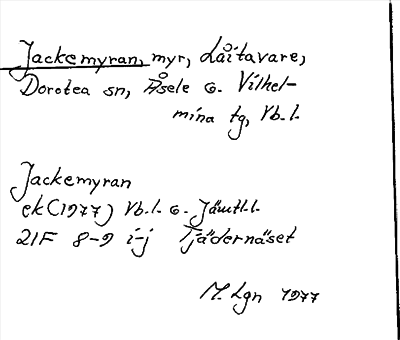 Jackemyran, myr, Låitavare,
Dorotea sn, Åsele o. Vilhel-
mina tg, Vb.l.
Jackemyran
ek (1977) Vb.l. o. Jämtl.l.
21F 8-9 i-j Tjädernäset
M. Lgn 1977